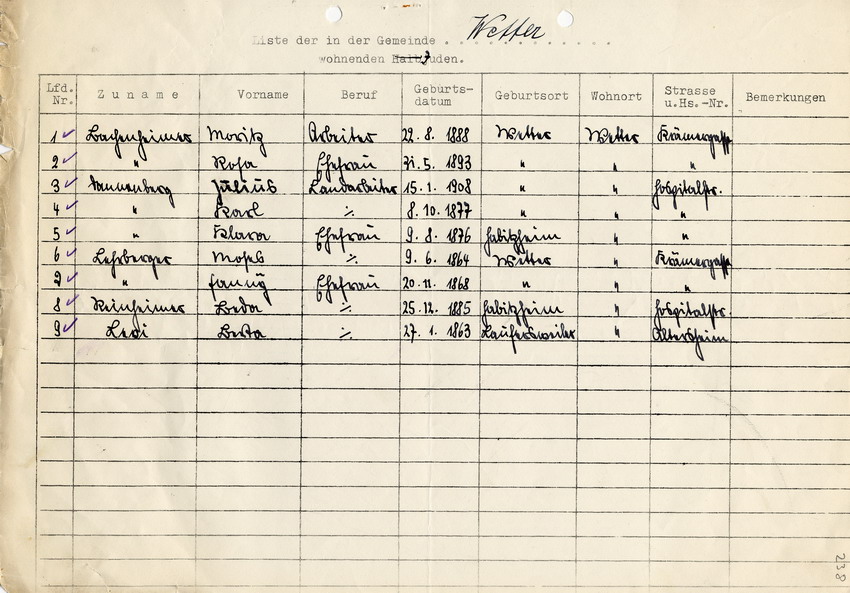 Liste der in der Gemeinde Wetter
wohnenden Halbjuden.
Lfd. Nr. Zuname Vorname Beruf Geburts-datum Geburtsort Wohnort Strasse u.Hs.-Nr. Bemerkungen
1 Bachenheimer Moritz Arbeiter 22. 8. 1888 Wetter Wetter Krämergasse
2 " Rosa Ehefrau 31. 5. 1893 " " "
3 Tannenberg Julius Landarbeiter 15. 1. 1908 " " Hospitalstr.
4 " Karl ·/. 8. 10. 1877 " " "
5 " Klara Ehefrau 9. 8. 1876 Habitzheim " "
6 Lehrberger Moses ·/. 9. 6. 1864 Wetter " Krämergasse
7 " Fanny Ehefrau 20. 11. 1868 " " "
8 Reinheimer Beda ·/. 25. 12. 1885 Habitzheim " Hospitalstr.
9 Levi Berta ·/. 27. 1. 1863 Laufersweiler " Altersheim
238